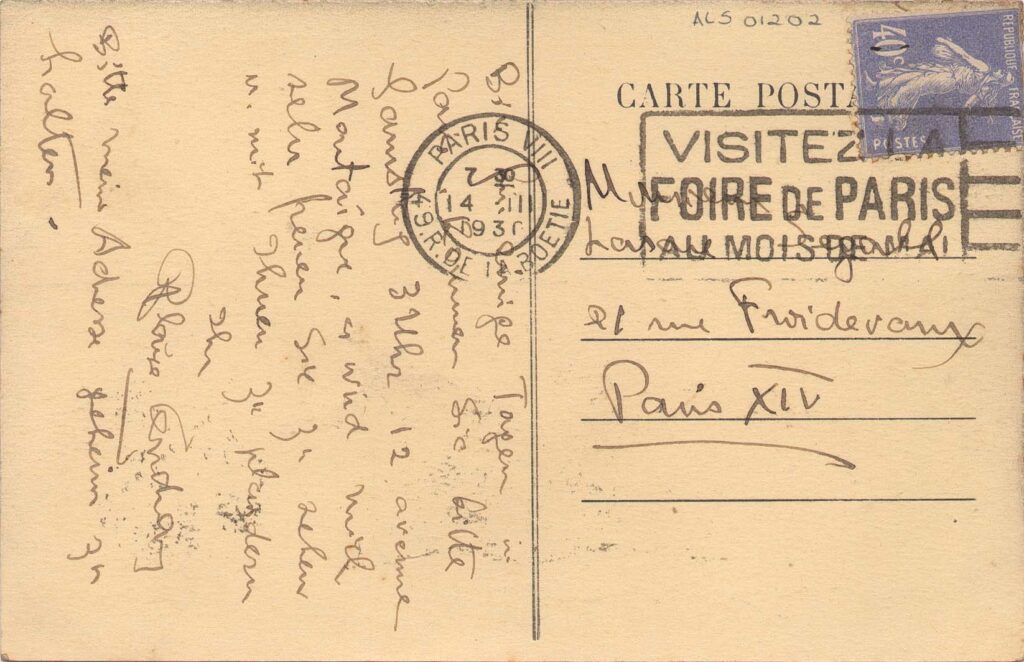 ALS 01202
REPUBLIQUE FRANÇAISE
40c
POSTES
CARTE POSTALE
PARIS VIII
14 II
1930
49.R.DE LA BOETIE
VISITEZ LA
FOIRE DE PARIS
AU MOIS DE MAI
Monsieur
Lasar Segall
21 rue Froidevaux
Paris XIV
Bin einige Tagen in
Paris kommen Sie bitte
Samstag 3 Uhr 12 avenue
Montaigne, es wird mich
sehr freuen Sie zu sehen
u. mit Ihnen zu plaudern
Ihr
Bitte meine Adresse geheim zu
halten.